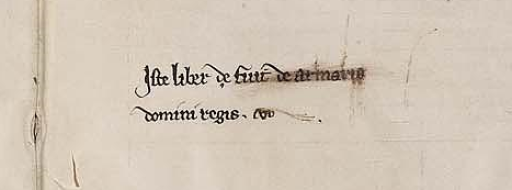 Iste liber de de armario
domini regis.